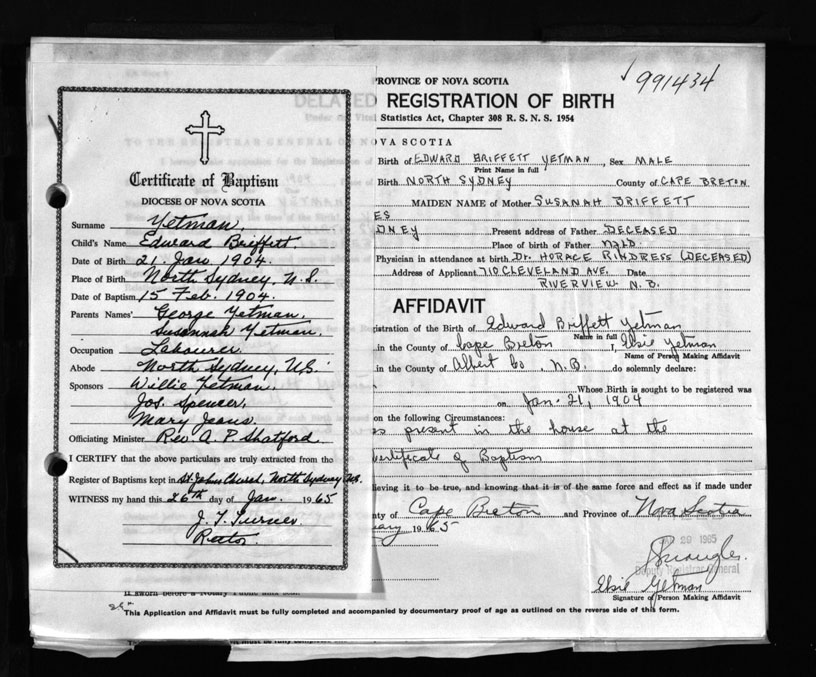 Certificate of Baptism
DIOCESE OF NOVA SCOTIA
Surname Yetman.
Child's Name Edward Briffett.
Date of Birth 21. Jan 1904.
Place of Birth North Sydney, N.S.
Date of Baptism 15 Feb. 1904.
Parents Names' George Yetman.
Susannah Yetman.
Occupation Labourer.
Abode North Sydney, N.S.
Sponsors Willie Yetman.
Jos. Spencer.
Mary Jeans.
Officiating Minister Rev. A. P. Shatford
I CERTIFY that the above particulars are truly extracted from the
Register of Baptisms kept in St. Johns Church, North Sydney N.S.
WITNESS my hand this 26th day of Jan. 1965
J. T. Turner
Rector
991434
PROVINCE OF NOVA SCOTIA
DELAYED REGISTRATION OF BIRTH
Under and Vital Statistics Act, Chapter 308 R. S. N. S. 1954
TO THE REGISTRAR GENERAL OF NOVA SCOTIA
Birth of EDWARD BRIFFETT YETMAN, Sex MALE
Print Name in full
Birth NORTH SYDNEY County of CAPE BRETON
MAIDEN NAME of Mother SUSANAH BRIFFETT
ES
DNEY Present address of Father DECEASED
Place of birth of Father NFLD.
Physician in attendance at birth DR. HORACE RINDRESS (DECEASED)
Address of Applicant 710 CLEVELAND AVE. Date
RIVERVIEW N.B.
AFFIDAVIT
gistration of the Birth of Edward Briffett Yetman
Name in full
in the County of Cape Breton I, Elsie Yetman
Name of Person Making Affidavit
in the County of Albert Co, N.B. do solemnly declare:
Whose Birth is sought to be registered was
on Jan. 21, 1904
on the following Circumstances:
as present in the house at the
certificate of Baptism
lieving it to be true, and knowing that it is of the same force and effect as if made under
nty of Cape Breton and Province of Nova Scotia
uary 1965
29 1965
Deputy Registrar General
Elsie Yetman
Signature of Person Making Affidavit
If sworn before a Notary Public
This Application and Affidavit must be fully completed and accompanied by documentary proof of age as outlined on the reverse side of this form.